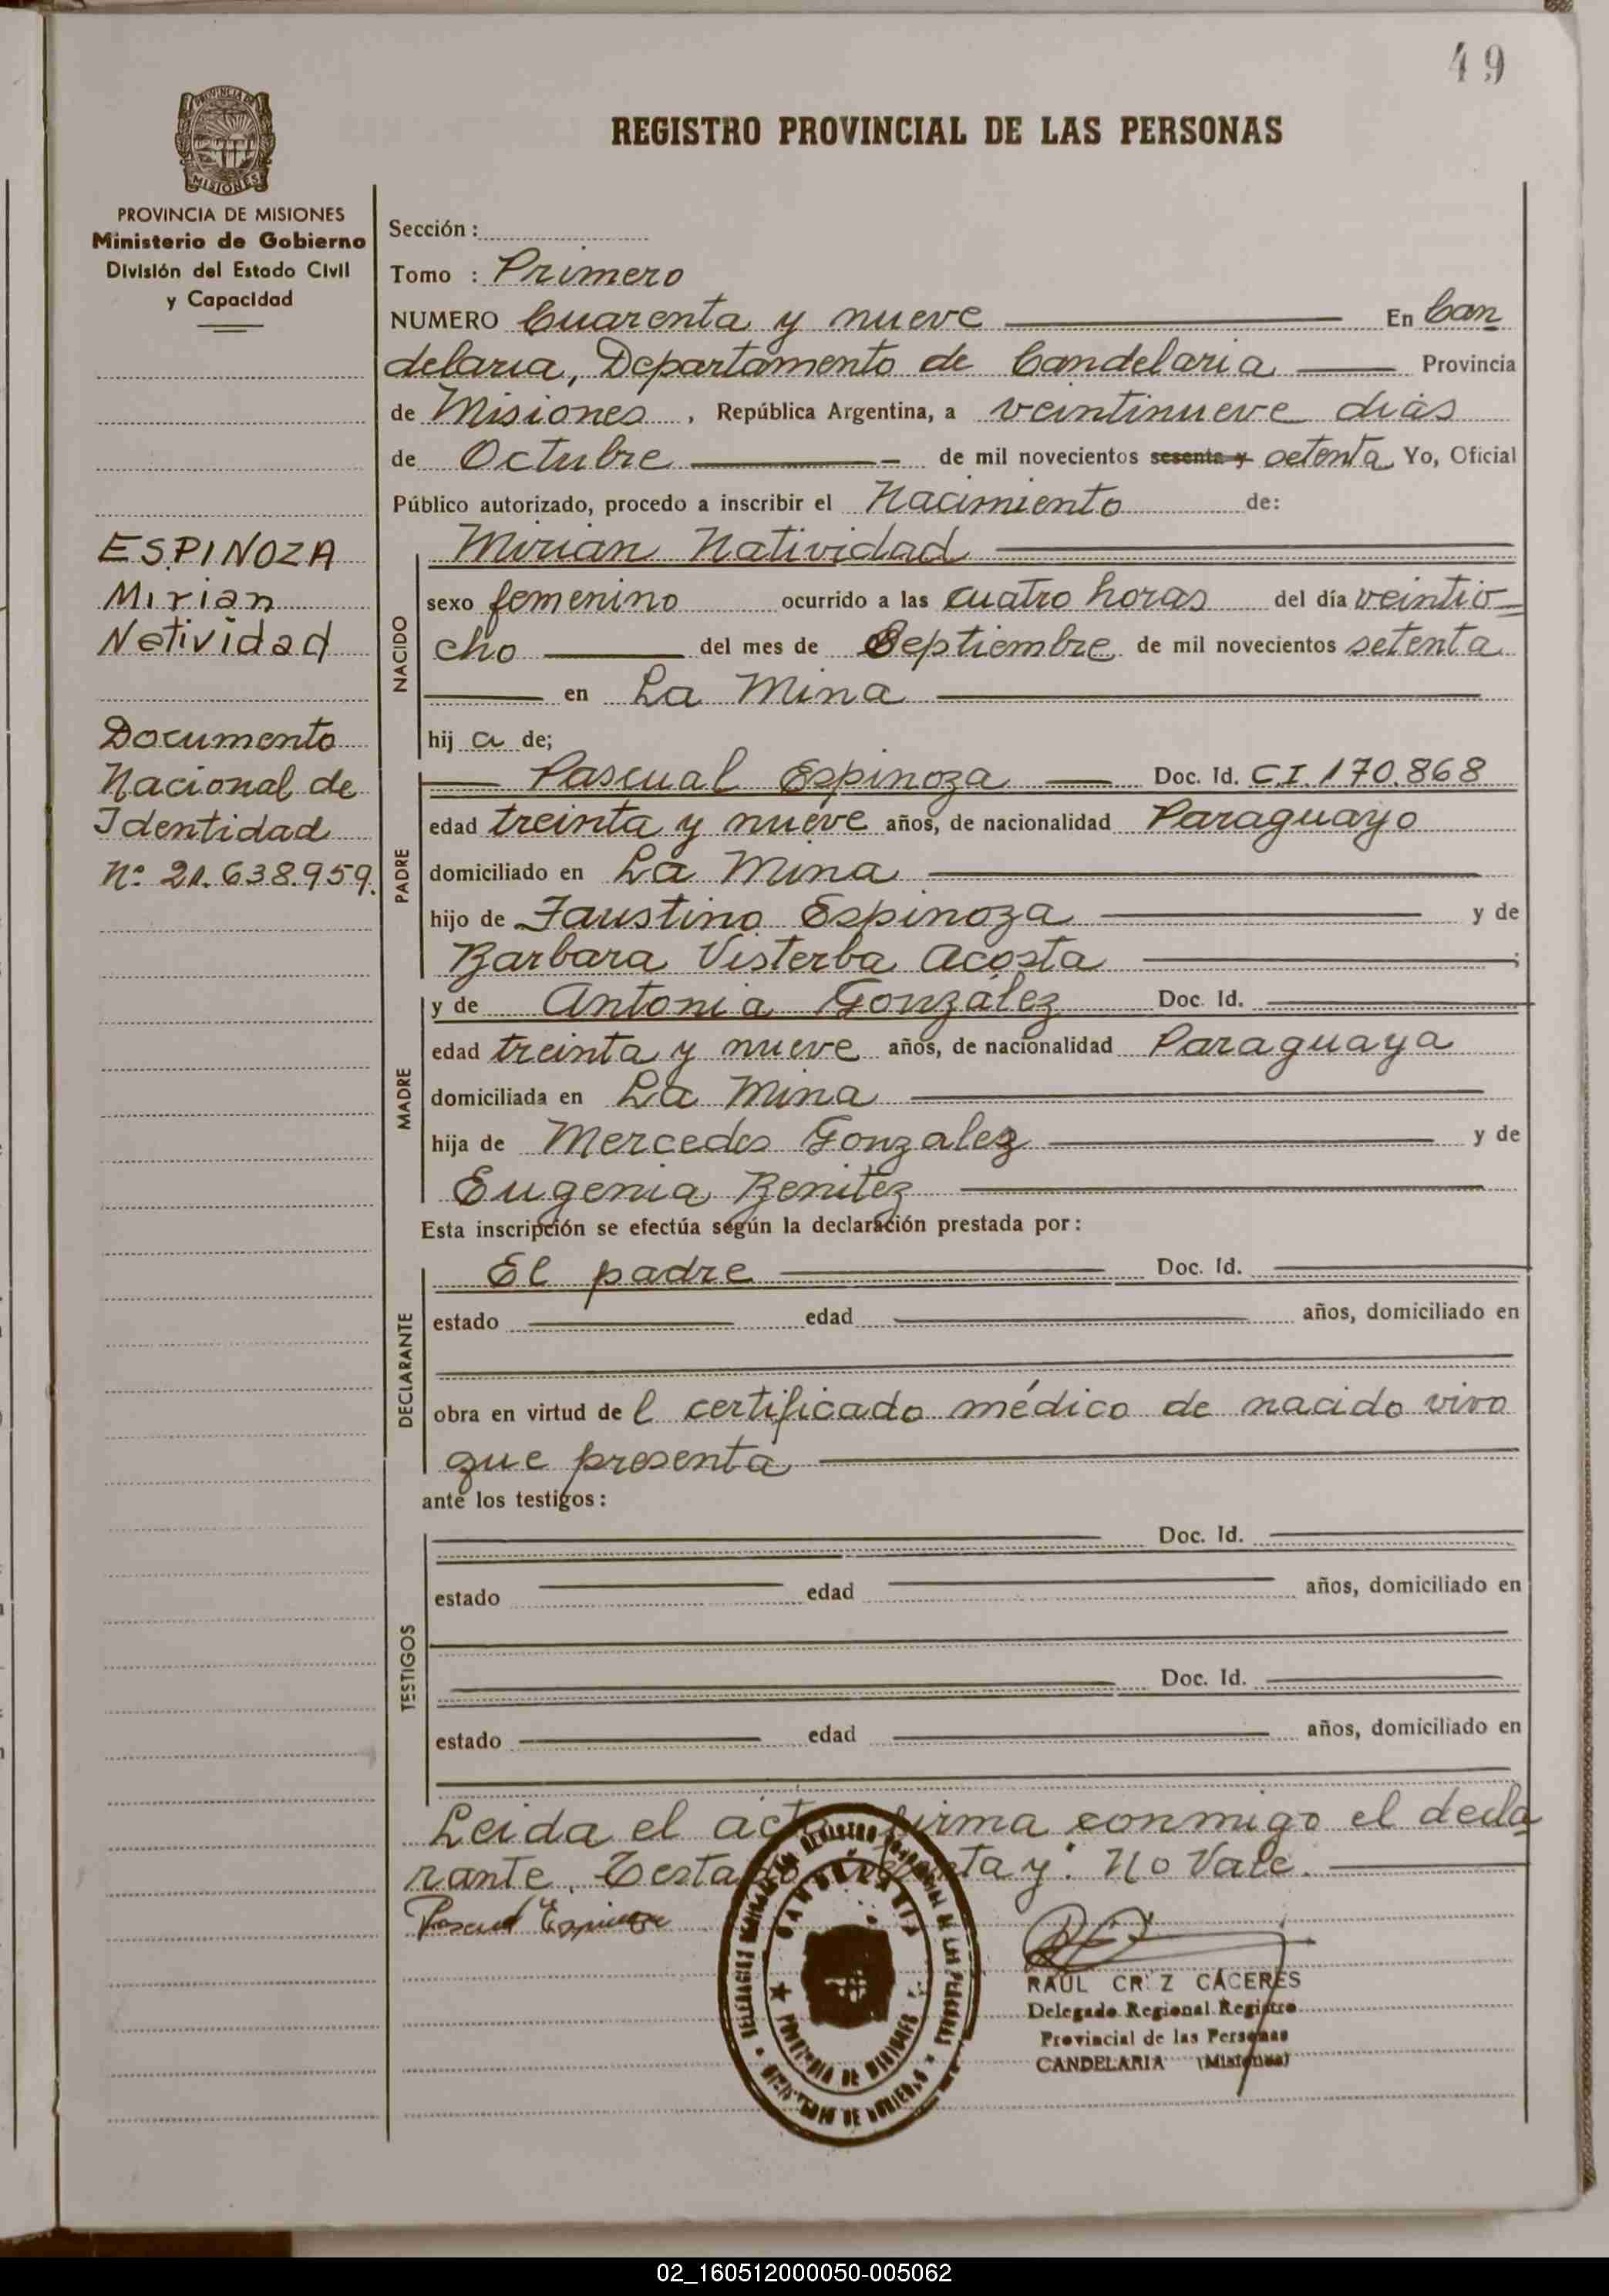 49
REGISTRO PROVINCIAL DE LAS PERSONAS
PROVINCIA DE MISIONES
Ministerio de Gobierno
División del Estado Civil
y Capacidad
ESPINOZA
Mirian
Natividad
Documento
Nacional de
Identidad
Nº 21.638.959.
Sección :
Tomo : Primero
NUMERO Cuarenta y nueve En Can
delaria, Departamento de Candelaria Provincia
de Misiones , República Argentina, a veintinueve dias
de Octubre de mil novecientos sesenta y setenta Yo, Oficial
Público autorizado, procedo a inscribir el Nacimiento de:
NACIDO
Mirian Natividad
sexo femenino ocurrido a las cuatro horas del día veintio=
cho del mes de Septiembre de mil novecientos setenta
en La Mina
hij a de;
PADRE
Pascual Espinoza Doc. Id. C.I. 170.868
edad treinta y nueve años, de nacionalidad Paraguayo
domiciliado en La Mina
hijo de Faustino Espinoza y de
Barbara Visterba Acosta ;
MADRE
y de Antonia González Doc. Id.
edad treinta y nueve años, de nacionalidad Paraguaya
domiciliada en La Mina
hija de Mercedes Gonzalez y de
Eugenia Benitez
Esta inscripción se efectúa según la declaración prestada por :
DECLARANTE
El padre Doc. Id.
estado edad años, domiciliado en
obra en virtud de l certificado médico de nacido vivo
que presenta
ante los testigos :
TESTIGOS
Doc. Id.
estado edad años, domiciliado en
Doc. Id.
estado edad años, domiciliado en
Leida el acta firma conmigo el decla
rante. Testado y: No Vale.
Pascual Espinoza
CANDELARIA
PROVINCIA DE MISIONES
MINISTERIO DE GOBIERNO
RAUL CRUZ CÁCERES
Delegado Regional Registro
Provincial de las Personas
CANDELARIA (Misiones)
02_160512000050-005062